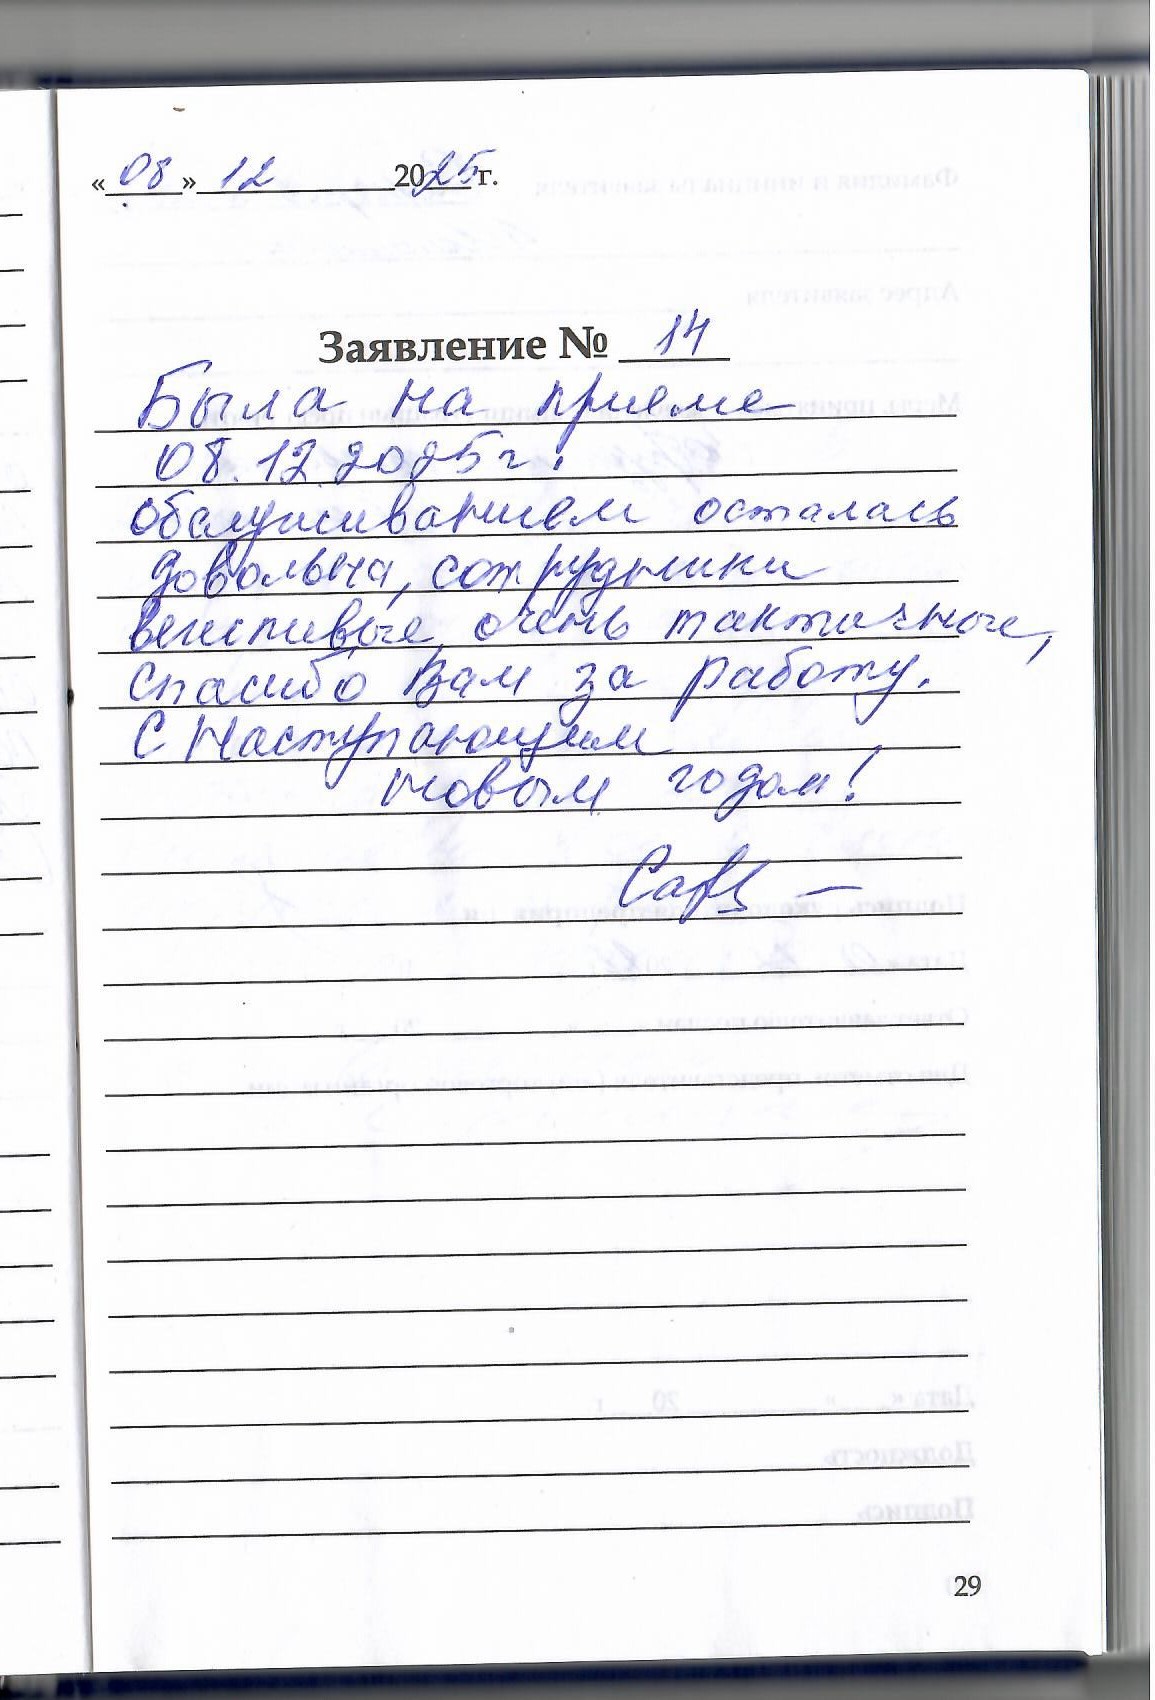 «08» 12 2025 г.
Заявление № 14
Была на приеме
08.12.2025г.
обслуживанием осталась
довольна, сотрудники
вежливые, очень тактичные,
спасибо Вам за работу.
С Наступающим
новым годом!
29